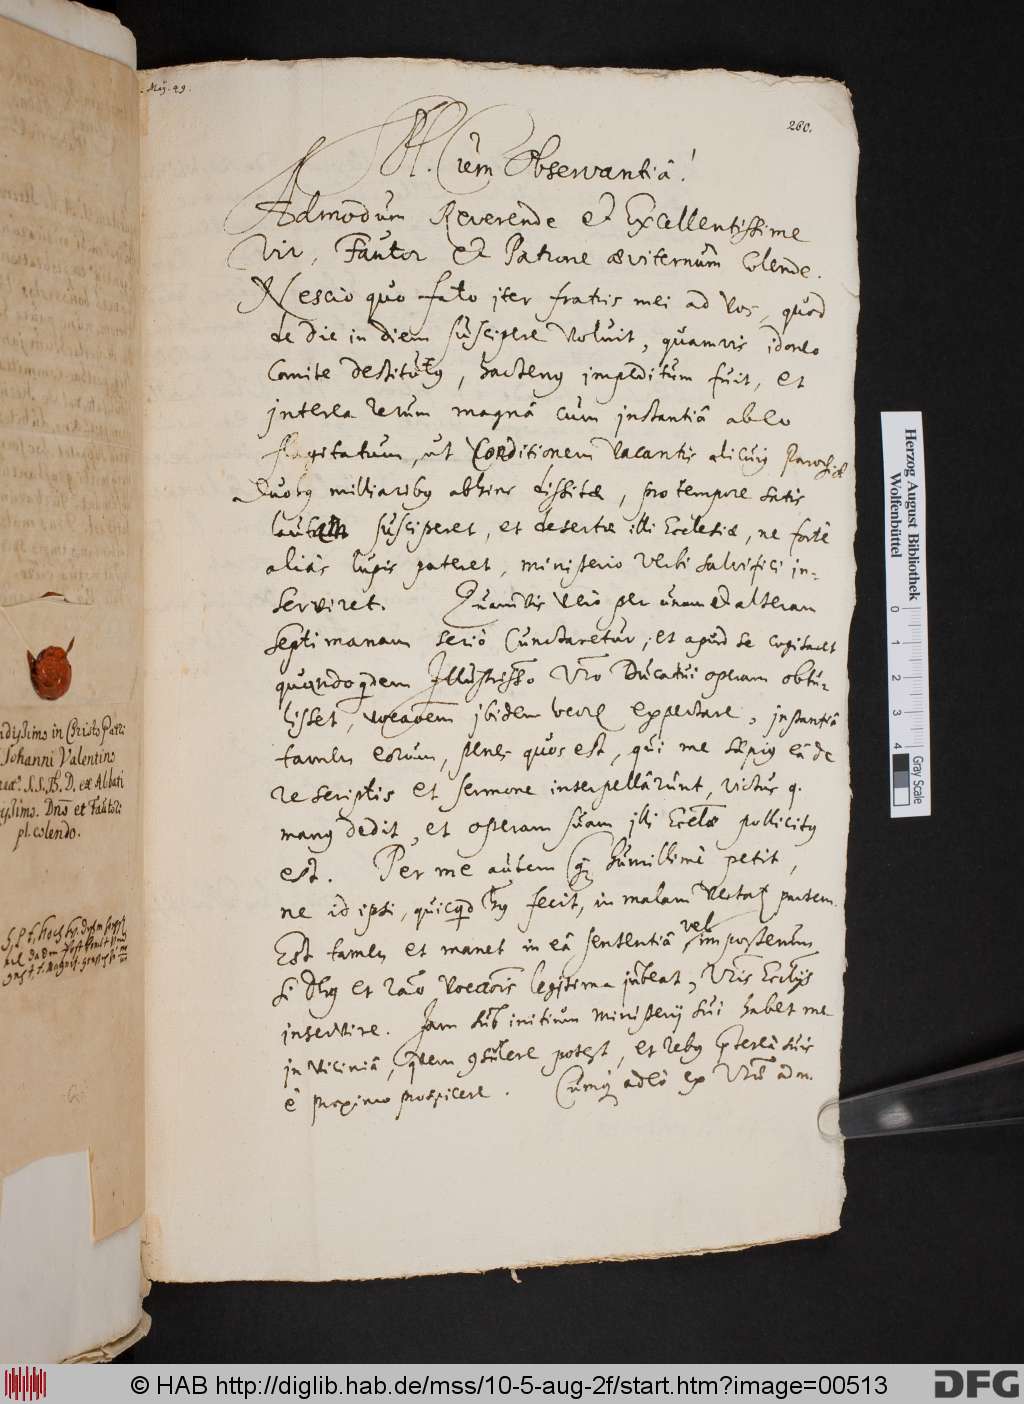 Maÿ. 49.
260.
Cum Observantiâ!
Admodum Reverende et Excellentissime
Vir, Fautor et Patrone æviternùm Colende.
Nescio quo fato iter fratris mei ad Vos, quod
de die in diem suscipere voluit, quamvis idoneo
Comite destitutg, hacteng impeditum fuit, et
interea rerum magnâ cum instantiâ ab eo
flagitatum, ut Conditionem vacantis alicuig Parochiæ
Duobg milliaribg abhinc dissitæ, pro tempore satis
lautam susciperet, et desertæ illi Ecclesiæ, ne fortè
aliàs lupis pateret, ministerio verbi salvifici in-
serviret. Quamvis verò per unam et alteram
septimanam seriò Cunctaretur, et apud se cogitaret
quandoqdem Illustrisso Vro Ducatui operam obtu-
lisset, vocaoem ibidem velle expectare, instantiâ
tamen eorum, penes quos est, qui me sæpig eâ de
re scriptis et sermone interpellârunt, victus q.
mang dedit, et operam suam illi Eccliæ pollicitg
est. Per me autem humillimè petit,
ne id ipsi, quicqd hg fecit, in malam vertat partem.
Est tamen et manet in eâ sententiâ, vel imposterum
si Dg et rao vocaois legitima jubeat, Vris Eccliis
inservire. Jam sub initium Ministerij sui habet me
in viciniâ, qvem gsulere potest, et rebg pterea suis
è proximo prospicere. Cumq adeò ex Vris adm.
ndissimo in Christo Patri
Johanni Valentino
S.S. D. ex Abbati
issimo. Dno et Fautori
pl. colendo.
Herzog August Bibliothek
Wolfenbüttel
0 1 2 3 4
Gray Scale
© HAB http://diglib.hab.de/mss/10-5-aug-2f/start.htm?image=00513
DFG